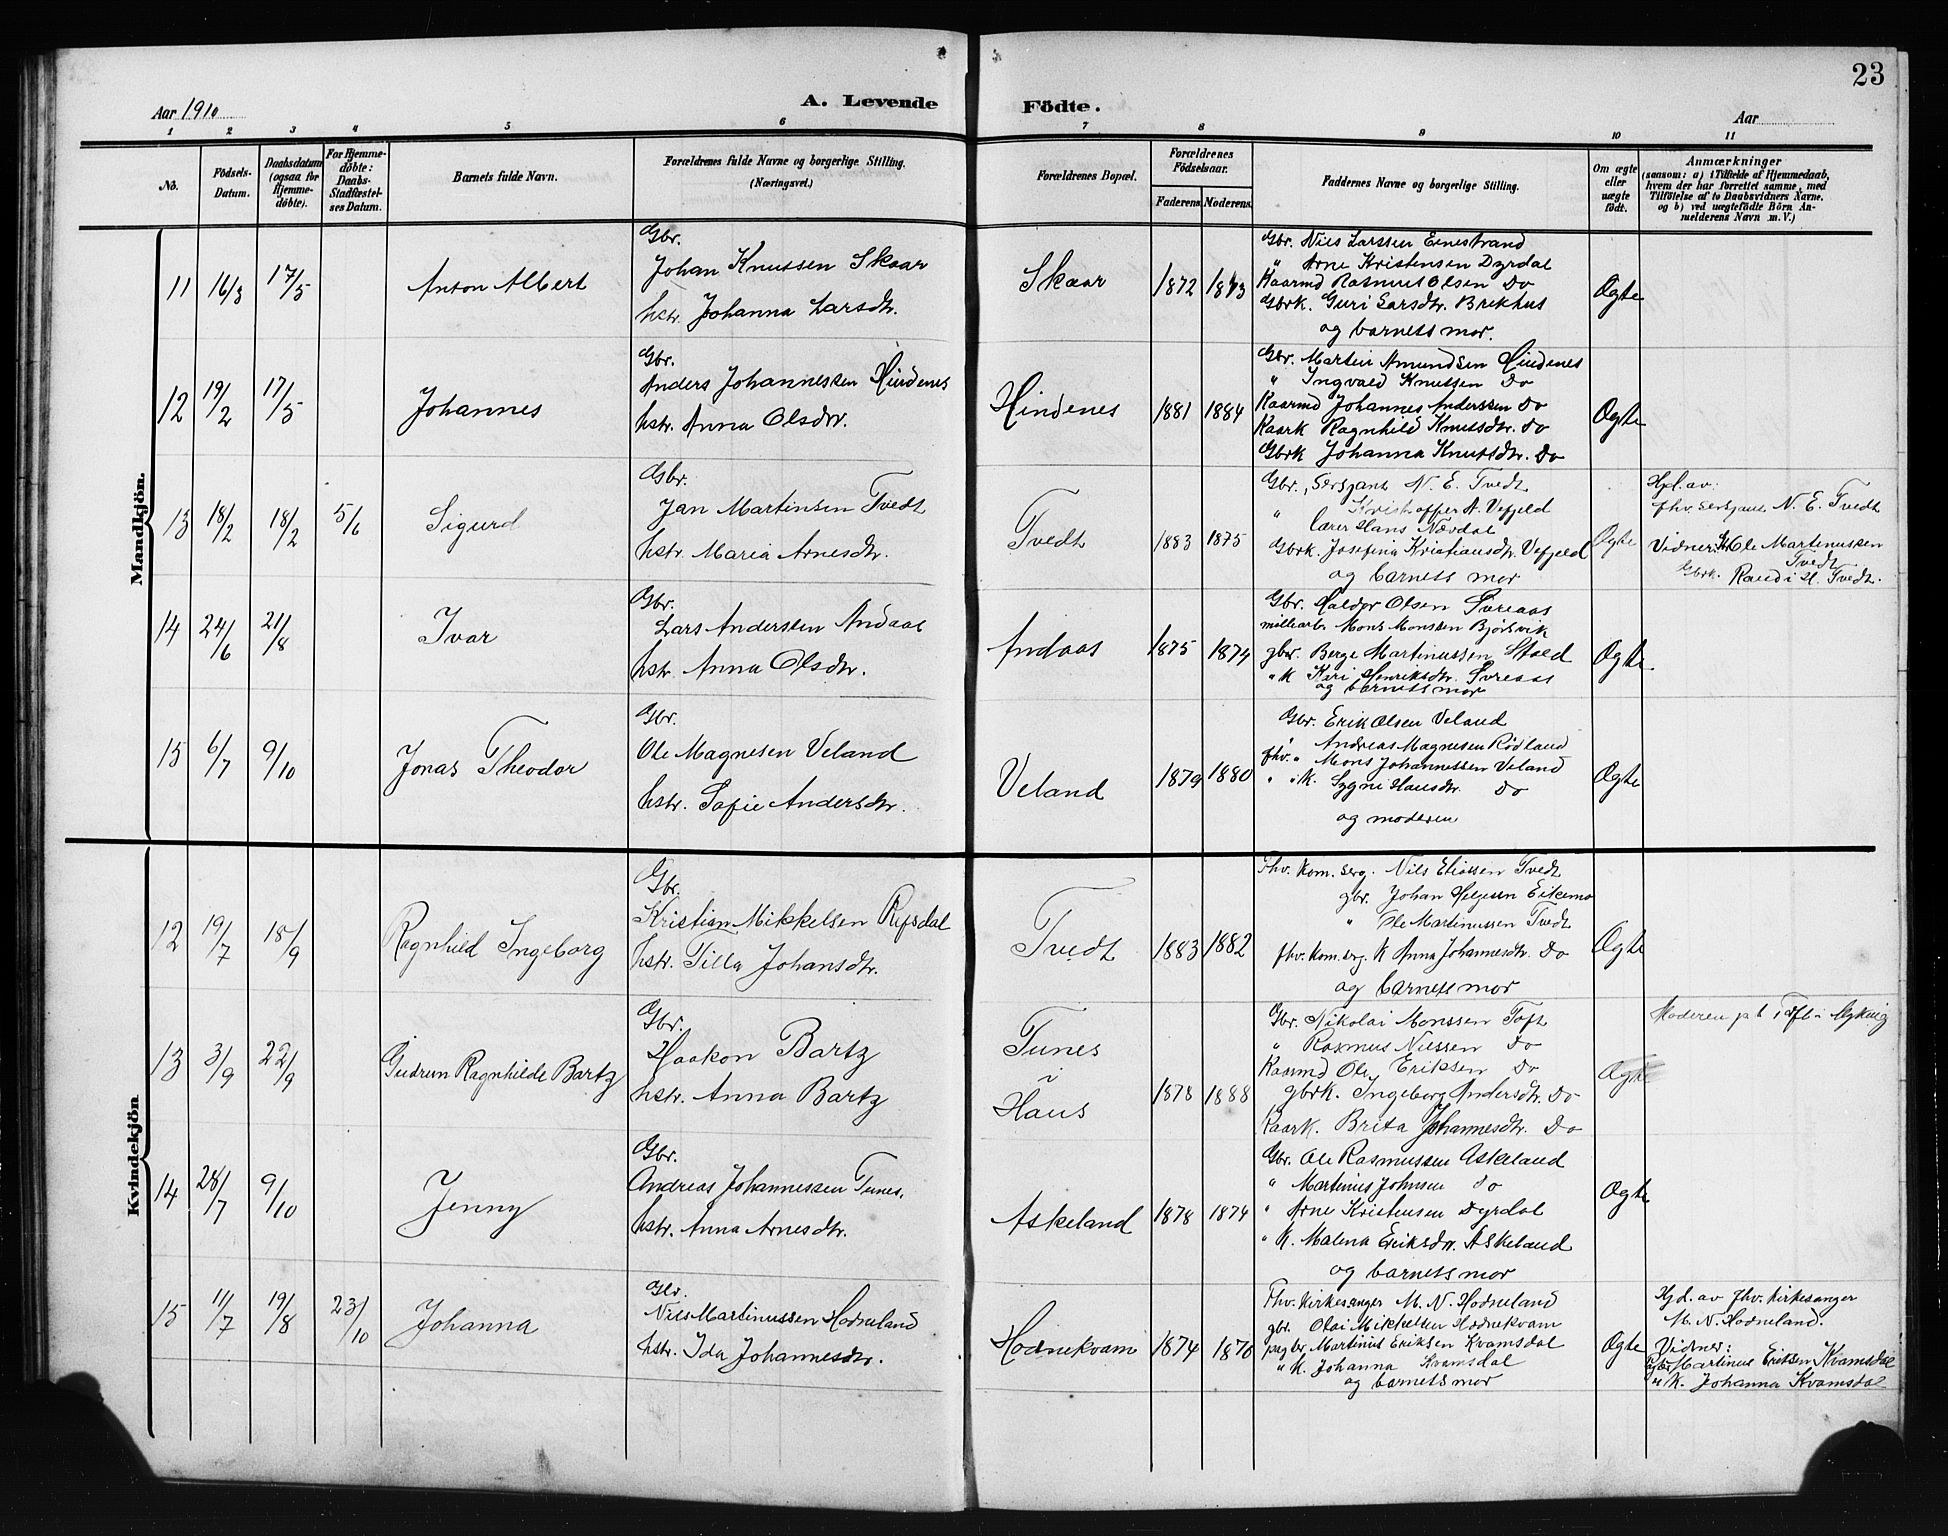 23
Aar 1910
A. Levende Födte.
Aar
1 2 3 4 5 6 7 8 9 10 11
No.
Födsels-Datum.
Daabsdatum (ogsaa for Hjemme-döbte).
For Hjemme-döbte: Daabs-Stadfæstel-ses Datum.
Barnets fulde Navn.
Forældrenes fulde Navne og borgerlige Stilling.
(Næringsvei.)
Forældrenes Bopæl.
Forældrenes Födselsaar.
Faderens. Moderens.
Faddernes Navne og borgerlige Stilling.
Om ægte eller uægte födt.
Anmærkninger
(saasom: a) i Tilfælde af Hjemmedaab,
hvem der har forrettet samme, med
Tilföielse af to Daabsvidners Navne.
og b) ved uægtefödte Börn An-
melderens Navn m. V.)
Mandkjön.
11 16/3 17/5 Anton Albert
Gbr.
Johan Knutsen Skaar
hstr. Johanna Larsdtr.
Skaar 1872 1873
Gbr. Nils Larssen Eenestrand
" Arne Kristensen Dyrdal
Kaarmd Rasmus Olsen Do
Gbrk. Guri Larsdtr. Brekhus
og barnets mor.
Ægte
12 19/2 17/5 Johannes
Gbr.
Anders Johannessen Hindenes
hstr. Anna Olsdtr.
Hindenes 1881 1884
Gbr. Martin Amundsen Hindenes
" Ingvald Knutsen Do
Kaarmd Johannes Anderssen Do
Kaark Ragnhild Knutsdtr. Do
Gbrk Johanna Knutsdtr. Do
Ægte
13 18/2 18/2 5/6 Sigurd
Gbr.
Jan Martinsen Tvedt
hstr. Maria Arnesdtr.
Tvedt 1883 1875
Gbr., Sersjant N. E. Tvedt
" Kristoffer A. Vefjeld
lærer Hans Nævdal
Gbrk. Josefina Kristiansdtr. Vefjeld
og barnets mor
Ægte
Hjd. av:
fhv. sersjant N. E. Tvedt
Vidner: Ole Martinussen
Tvedt
Gbrk. Randi H. Tvedt.
14 24/6 21/8 Ivar
Gbr.
Lars Anderssen Andaas
hstr. Anna Olsdtr.
Andaas 1875 1874
Gbr. Haldor Olsen Svreaas
millearb. Mons Monssen Bjørsvik
gbr. Berge Martinussen Støld
" K Kari Henriksdtr. Svreaas
og barnets mor
Ægte.
15 6/7 9/10 Jonas Theodor
Gbr.
Ole Magnesen Veland
hstr. Sofie Andersdtr.
Veland 1879 1880
Gbr. Erik Olsen Veland
" Andreas Magnesen Rødland
fhv. " Mons Johannessen Veland
" " K. Sygni Hansdtr. Do
og moderen
Ægte
Kvindekjön
12 19/7 18/9 Ragnhild Ingeborg
Gbr.
Kristian Mikkelsen Refsdal
hstr. Tilla Johansdtr.
Tvedt 1883 1882
Fhv. kom. serg. Nils Eliassen Tvedt
gbr. Johan Helgesen Eikemo
" Ole Martinussen Tvedt
fhv. kom. serg. K Anna Johannesdtr. Do
og barnets mor
Ægte
13 3/9 22/9 Gudrun Ragnhilde Bartz
Gbr.
Haakon Bartz
hstr. Anna Bartz
Tunes
Haus
1878 1888
Gbr. Nikolai Monssen Toft
" Rasmus Nilssen Do
Kaarmd Ole Eriksen Do
gbrk. Ingeborg Andersdtr. Do
Kaark. Brita Johannesdtr. Do
Ægte
Moderen
14 28/7 9/10 Jenny
Gbr.
Andreas Johannessen Tunes.
hstr. Anna Arnesdtr.
Askeland 1878 1874
Gbr. Ole Rasmussen Askeland
" Martinus Johnsen do
" Arne Kristensen Dyrdal
" K. Malena Eriksdtr. Askeland
og barnets mor
Ægte
15 11/7 19/8 23/10 Johanna
Gbr.
Nils Martinussen Hodneland
hstr. Ida Johannesdtr.
Hodnekvam 1874 1870
Fhv. kirkesanger M. N. Hodneland
gbr. Olai Mikkelsen Hodnekvam
Martinus Eriksen Kvamsdal
" K. Johanna Kvamsdal
og barnets mor
Ægte
Hjd. av fhv. kirkesanger
M. N. Hodneland.
Vidner:
Martinus Eriksen Kvamsdal
" K. Johanna Kvamsdal